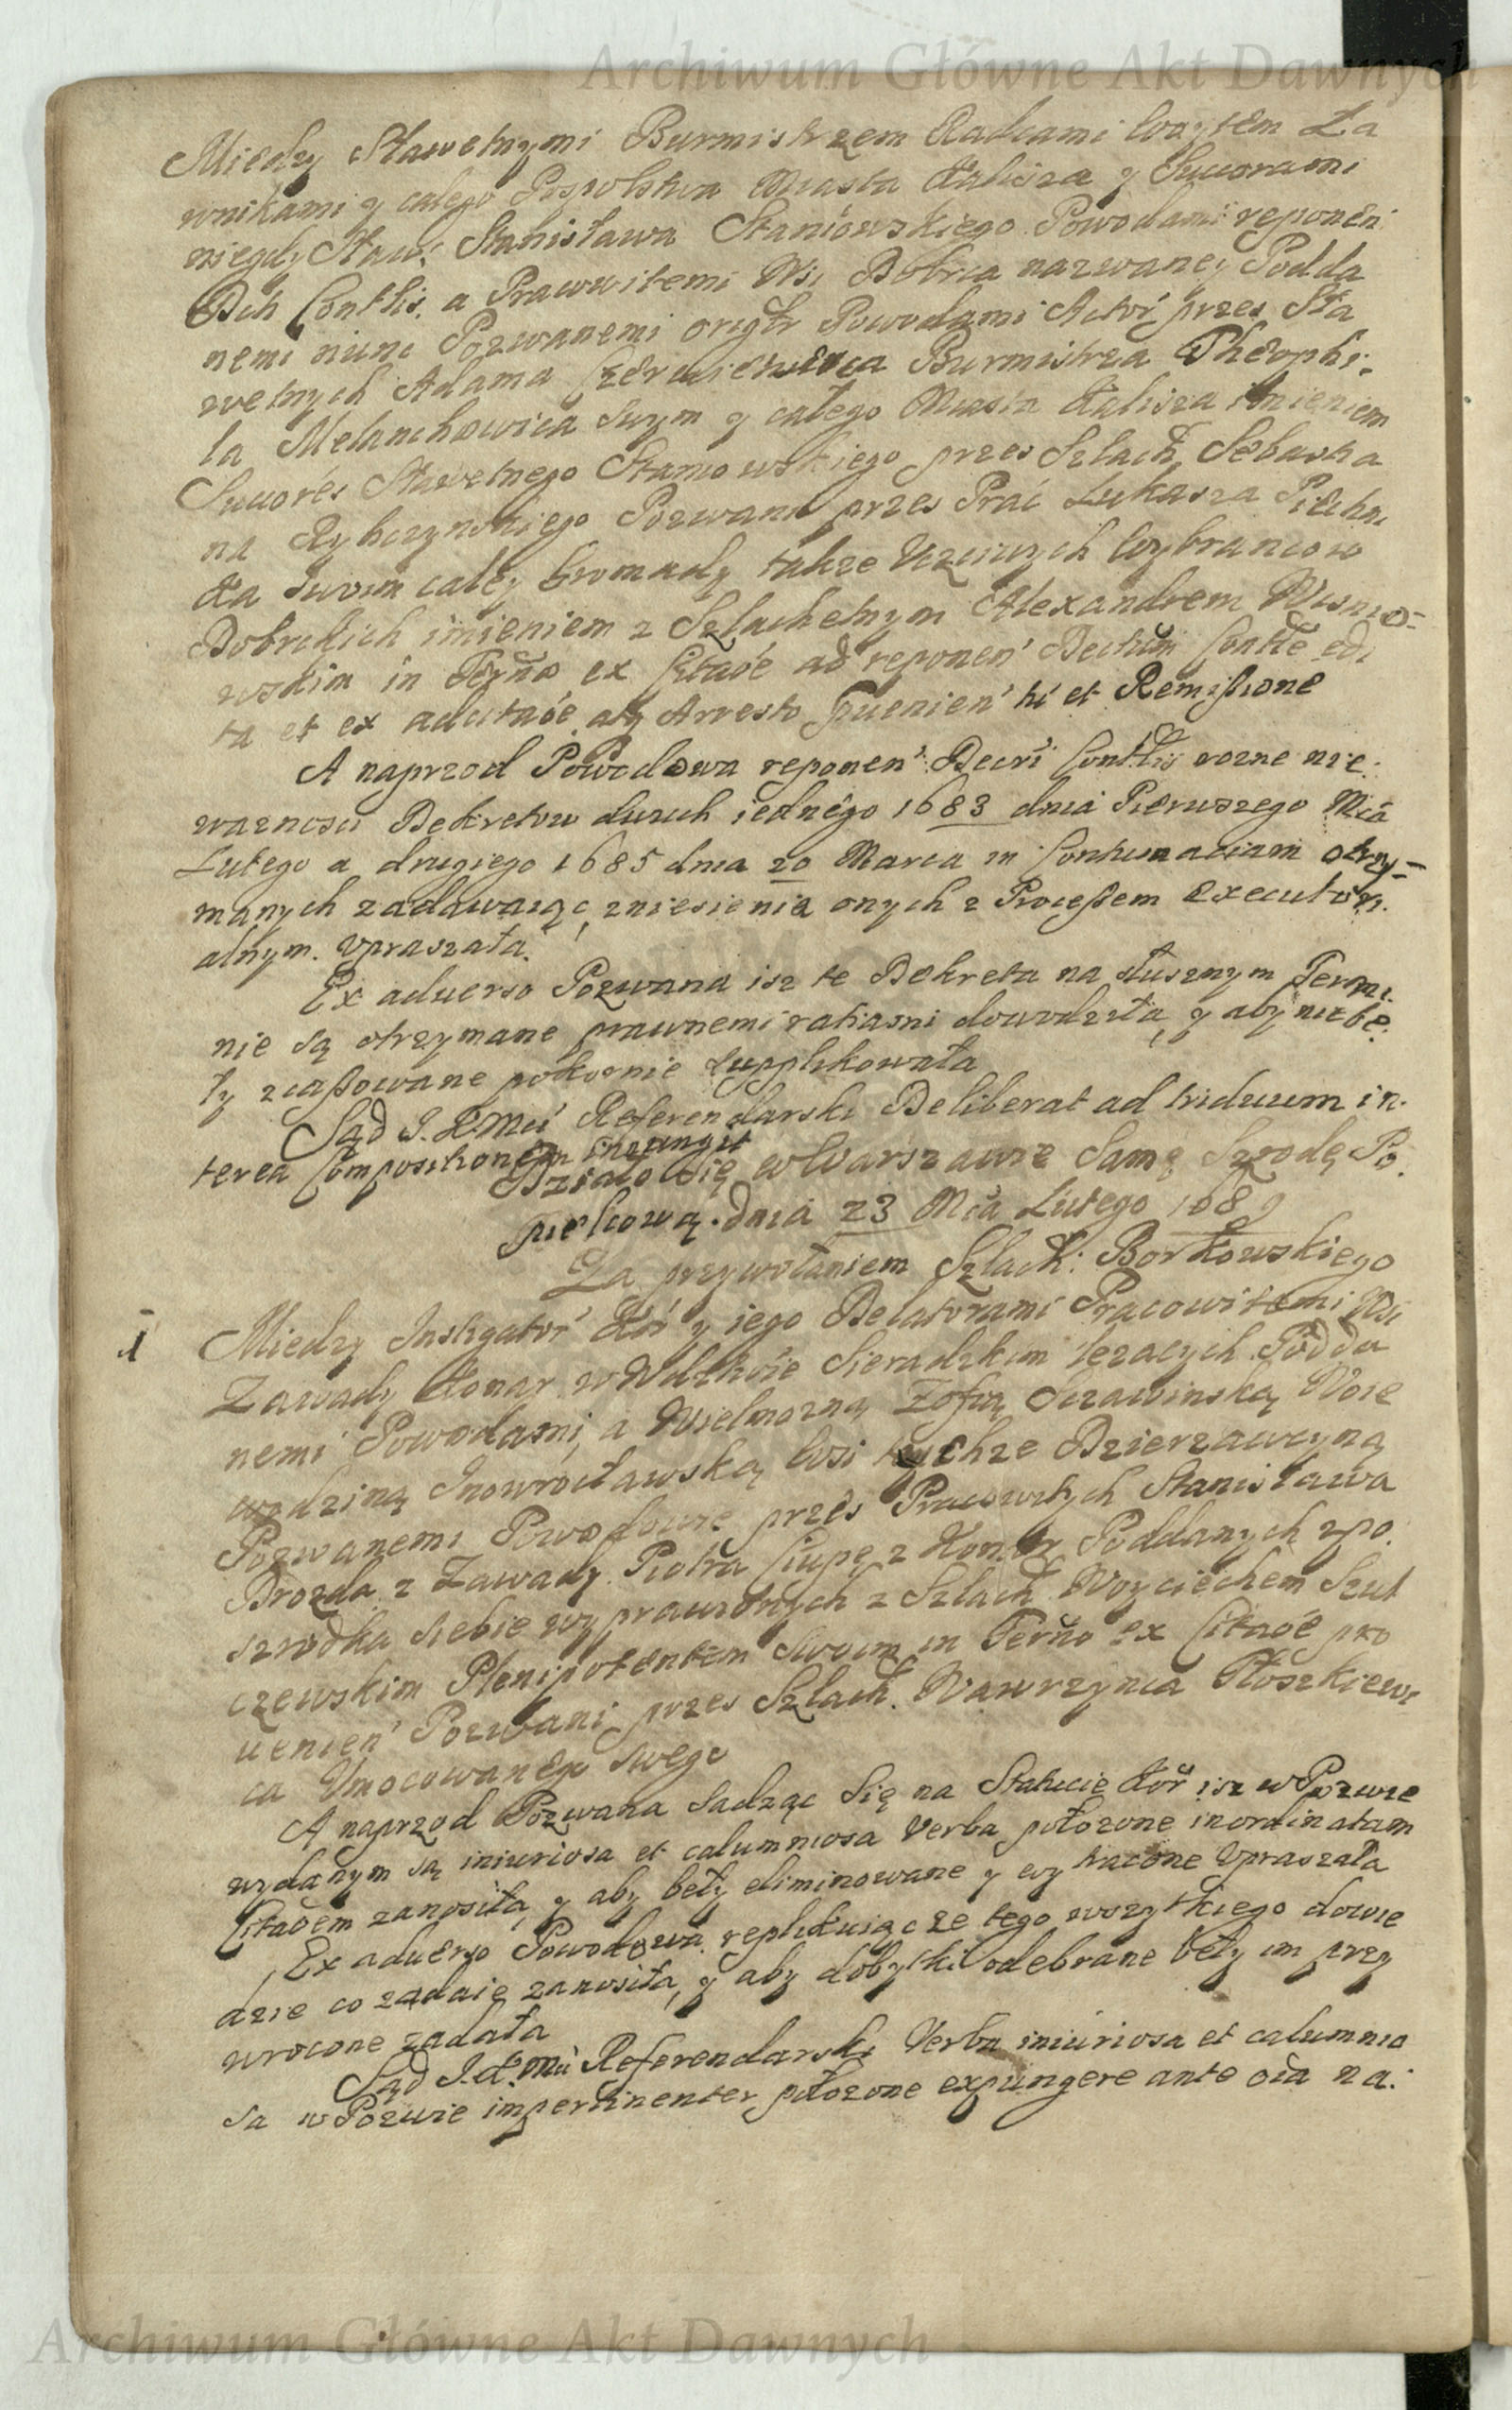 Archiwum Główne Akt Dawnych
Miedzy Sławetnymi Burmistrzem Radcami Woytem Ła
wnikami y całego Pospolstwa Miasta Kalisza y Succorami
niegdy Sław: Stanisława Staniowskiego Powodami reponen'
Dch Conttis. a Pracowitemi Wsi Dobrca nazwaney Podda
nemi nunc Pozwanemi origłr Powodami Actor' przes Sła
wetnych Adama Burmistrza Theophi:
la Melanchowica swym y całego Miasta Kalisza imieniem
Succores Sławetnego Staniowskiego przes Szlach. Sebastia
na Rybczynskiego Pozwani przes Prac Łukasza Piecha
ka swoim całey Gromady takze Uczciwych Wybrancow
Dobrckich imieniem z Szlachetnym Alexandrem Wisnio=
wskim in Termo ex Citaoe ad reponen' Dectum Contte edi
ta et ex adcitaoe atq Arresto prouenien' ti et Remissione
A naprzod Powodowa reponen' Decri Conttis rozne nie:
waznosci Dekretow dwuch iednego 1683 dnia Pierwszego Mca
Lutego a drugiego 1685 dnia 20 Marca in Contumaciam otrzy=
manych zadawaiąc, zniesienia onych z Processem executori:
alnym. Upraszała.
Ex aduerso Pozwana isz te Dekreta na słusznym Termi:
nie są otrzymane prawnemi ratiami dowodziła, y aby niebe:
ły zcassowane pokornie supplikowała
Sąd J. K Mci Referendarski Deliberat ad triduum in:
terea Compositionem iniungit
Działo się w Warszawie Samą Szrodę Po:
pielcową. dnia 23 Mca Lutego 1689
Za przywołaniem Szlach: Borkowskiego
1 Miedzy Instigator' Kor' y iego Delatorami Pracowitemi Wsi
Zawady Konar w Wdztwie Sieradzkim lezacych Podda
nemi Powodami, a Wielmozną Zofią Szczawinską Woie
wodziną Inowrocławską Wsi tychze Dzierzawczyną
Pozwanemi Powodowie przes Pracowitych Stanisława
Drozda z Zawady Piotra Ciupę z Konar Poddanych zpo:
szrodka siebie wyprawionych z Szlach. Woyciechem Szul
czewskim Plenipotentem swoim in Termo ex Citaoe pro
uenien' Pozwani przes Szlach. Wawrzynca Płoszkiewi
ca Umocowanego swego
A naprzod Pozwana sadząc się na Statucie Kor' isz w Pozwie
wydanym są iniuriosa et calumniosa Verba położone inordinatam
Citaoem zanosiła, y aby beły eliminowane y wytracone Upraszała
Ex aduerso Powodowa replikuiąc ze tego wszytkiego dowie
dzie co zadaie zanosiła, y aby dobytki odebrane beły im przy
wrocone zadała
Sąd J. K Mci Referendarski Verba iniuriosa et calumnio
sa w Pozwie impertinenter położone expungere ante oia na:
Archiwum Główne Akt Dawnych